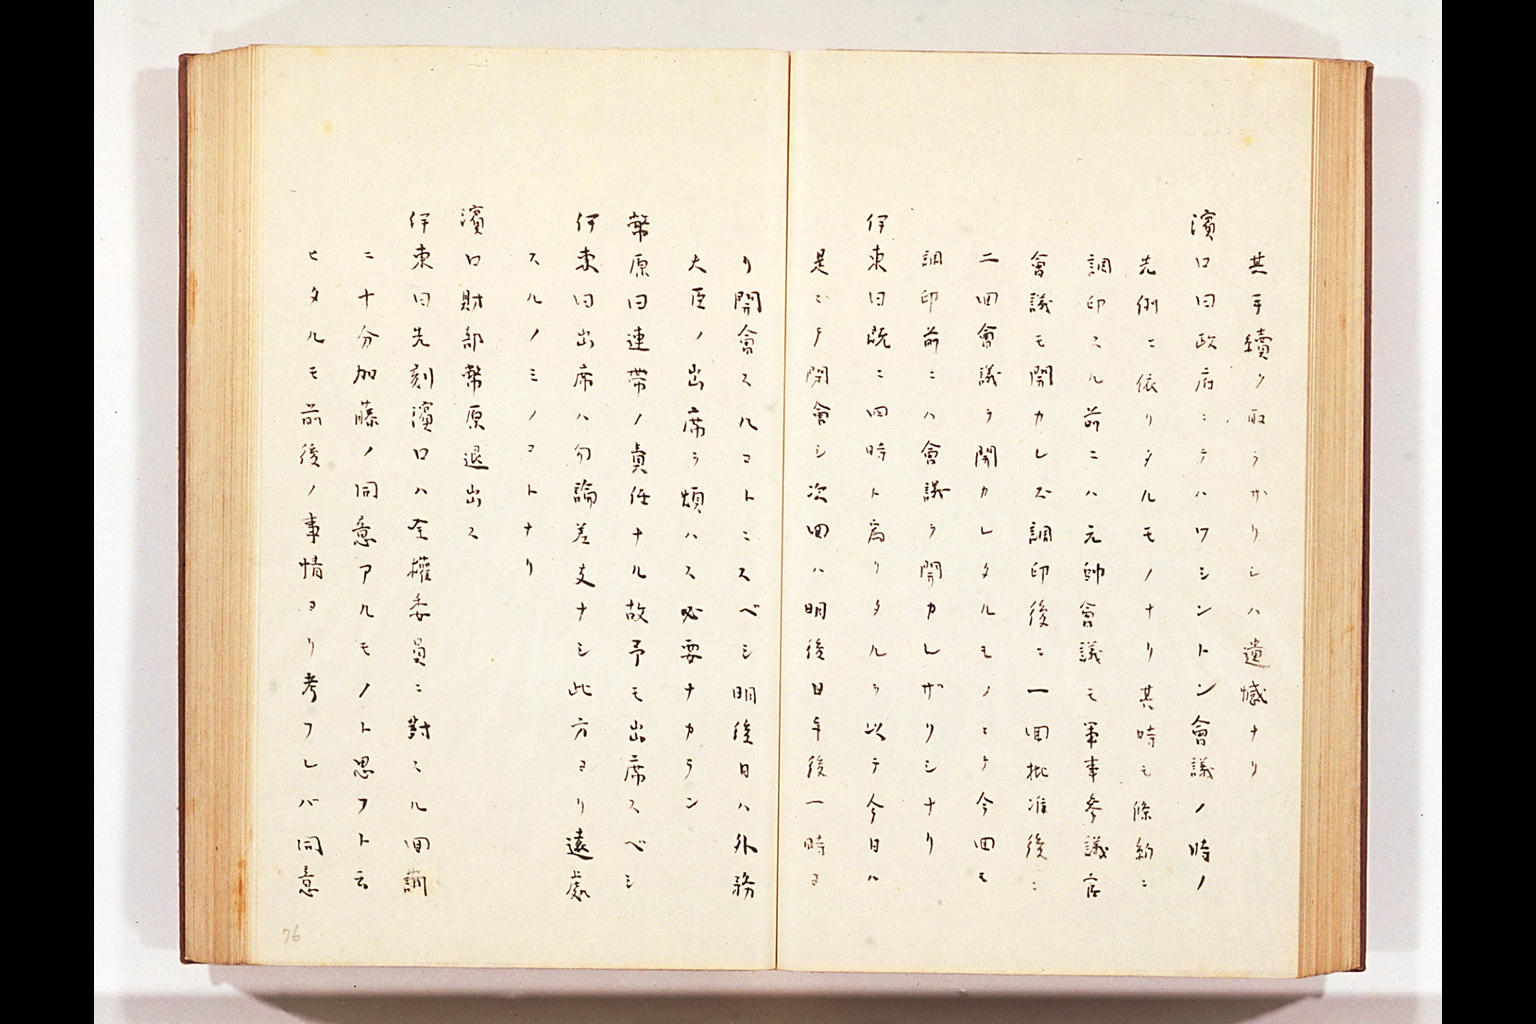 其手續ヲ取ラザリシハ遺憾ナリ
濱口曰政府ニテハワシントン會議ノ時ノ
先例ニ依リタルモノナリ其時モ條約ニ
調印スル前ニハ元帥會議モ軍事參議官
會議モ開カレズ調印後ニ一回批准後ニ
二回會議ヲ開カレタルモノニテ今回モ
調印前ニハ會議ヲ開カレザリシナリ
伊東曰既ニ四時ト為リタルヲ以テ今日ハ
是ニテ閉會シ次回ハ明後日午後一時ヨ
リ開會スルコトニスベシ明後日ハ外務
大臣ノ出席ヲ煩ハス必要ナカラン
幣原曰連帶ノ責任ナル故予モ出席スベシ
伊東曰出席ハ勿論差支ナシ此方ヨリ遠慮
スルノミノコトナリ
濱口財部幣原退出ス
伊東曰先刻濱口ハ全權委員ニ對スル回訓
ニ十分加藤ノ同意アルモノト思フト云
ヒタルモ前後ノ事情ヨリ考フレバ同意
76